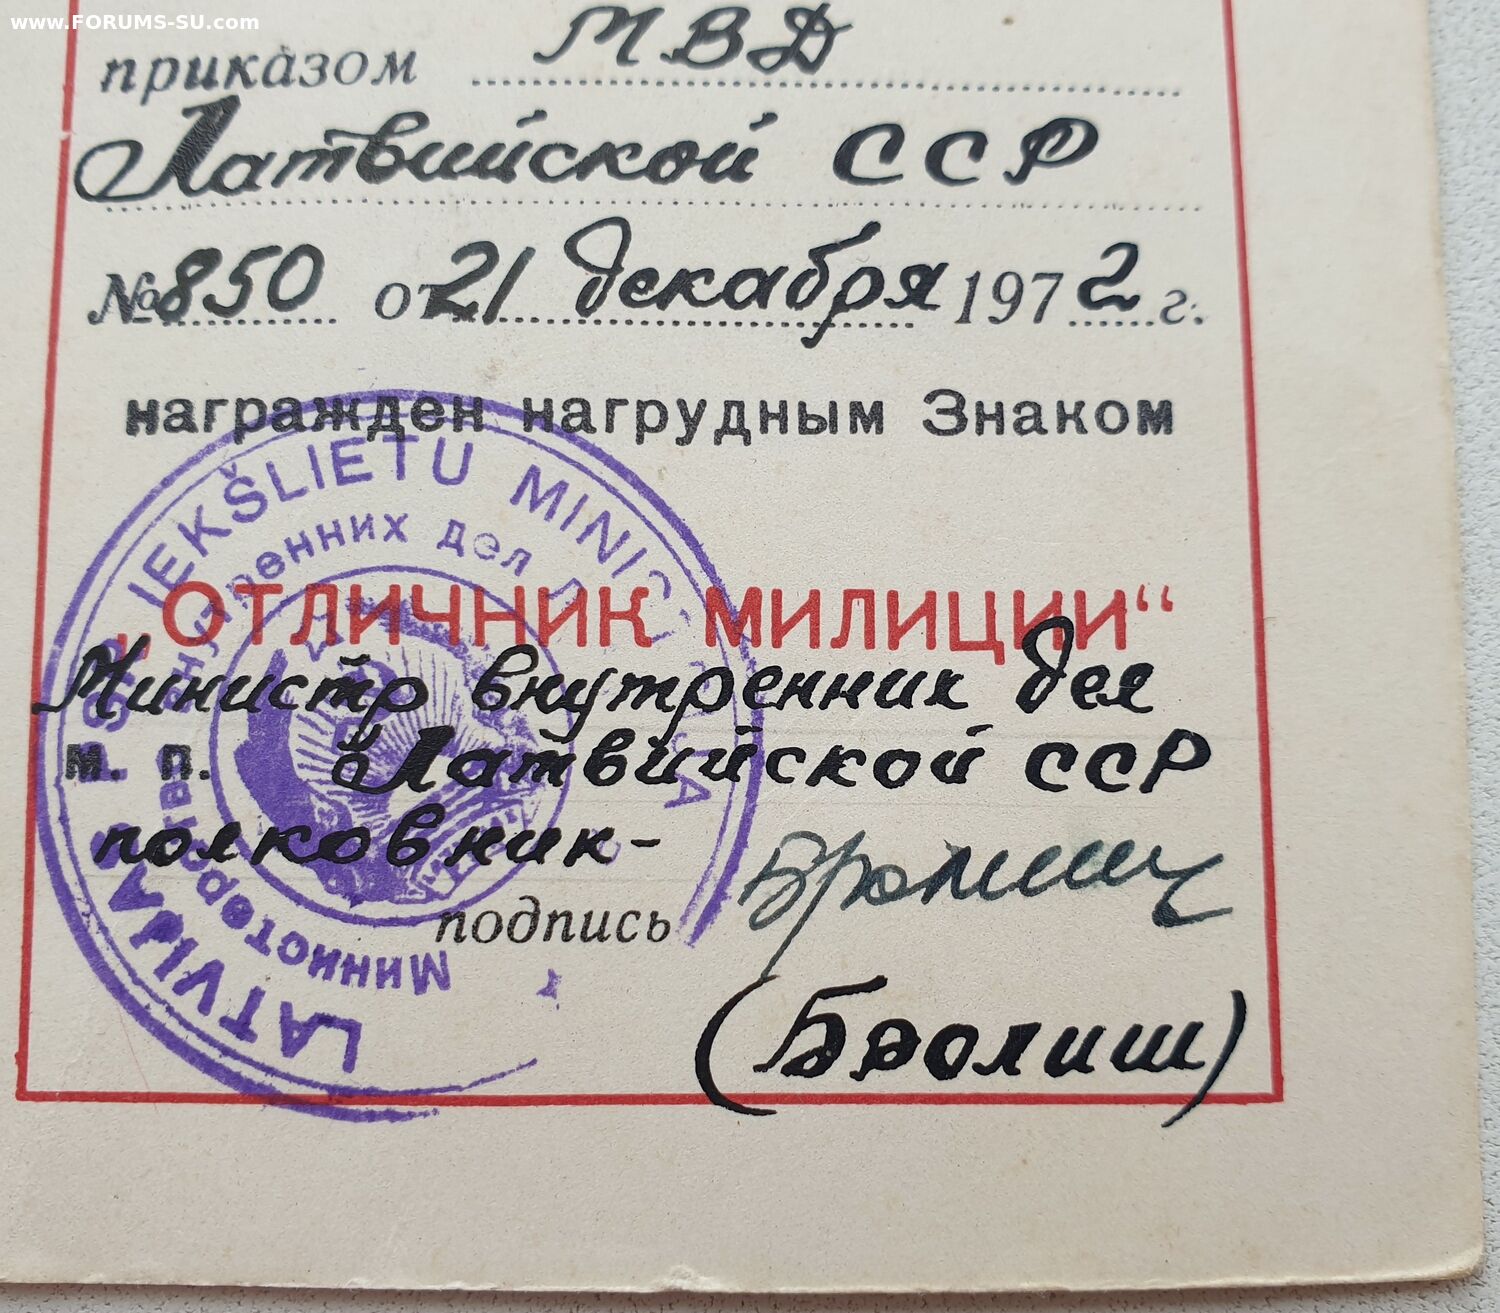 www.FORUMS-SU.com
приказом МВД
Латвийской ССР
№850 от 21 декабря 1972 г.
награжден нагрудным Знаком
„ОТЛИЧНИК МИЛИЦИИ“
Министр внутренних дел
м. п. Латвийской ССР
полковник-
подпись
(Бролиш)
LATVIJAS PSR IEKŠLIETU MINISTRIJA
Министерство внутренних дел